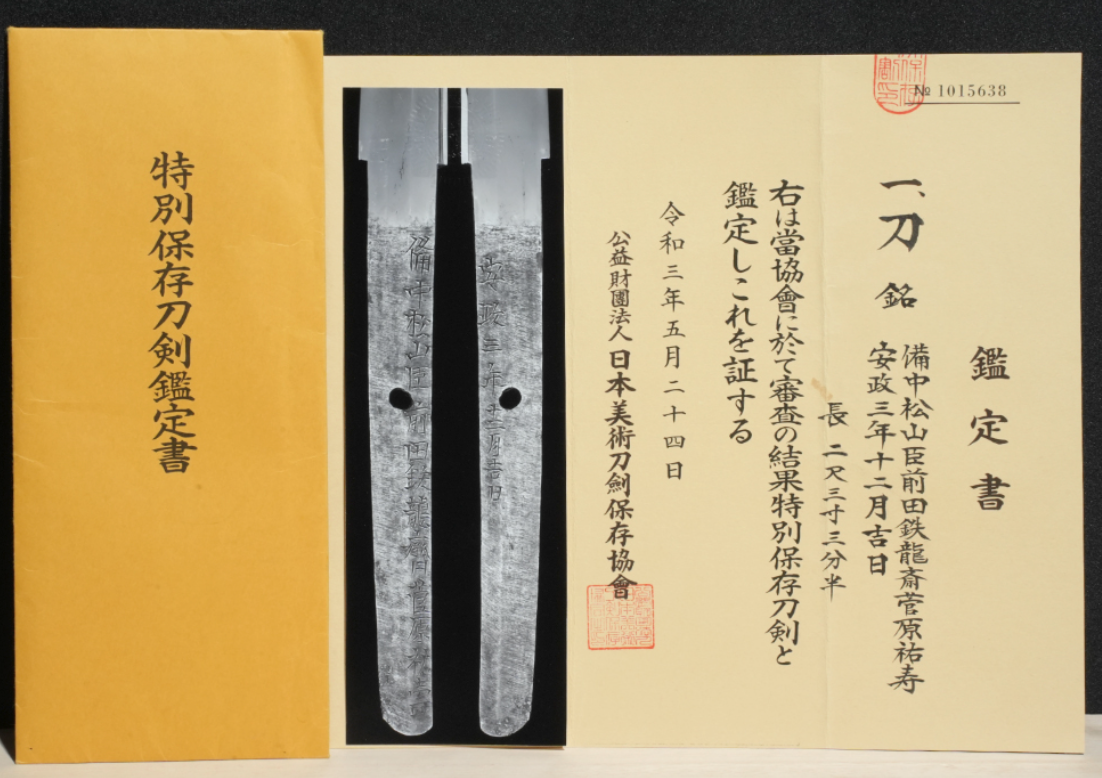 特別保存刀剣鑑定書
備中松山臣前田鉄龍斎菅原祐寿
安政三年十二月吉日
№ 1015638
鑑定書
一、刀 銘
備中松山臣前田鉄龍斎菅原祐寿
安政三年十二月吉日
長 二尺三寸三分半
右は當協會に於て審査の結果特別保存刀剣と
鑑定しこれを証する
令和三年五月二十四日
公益財團法人 日本美術刀劍保存協會